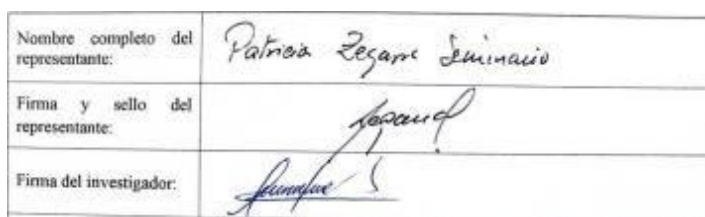 Nombre completo del
representante:
Patricia Zegarra Seminario
Firma y sello del
representante:
Firma del investigador: